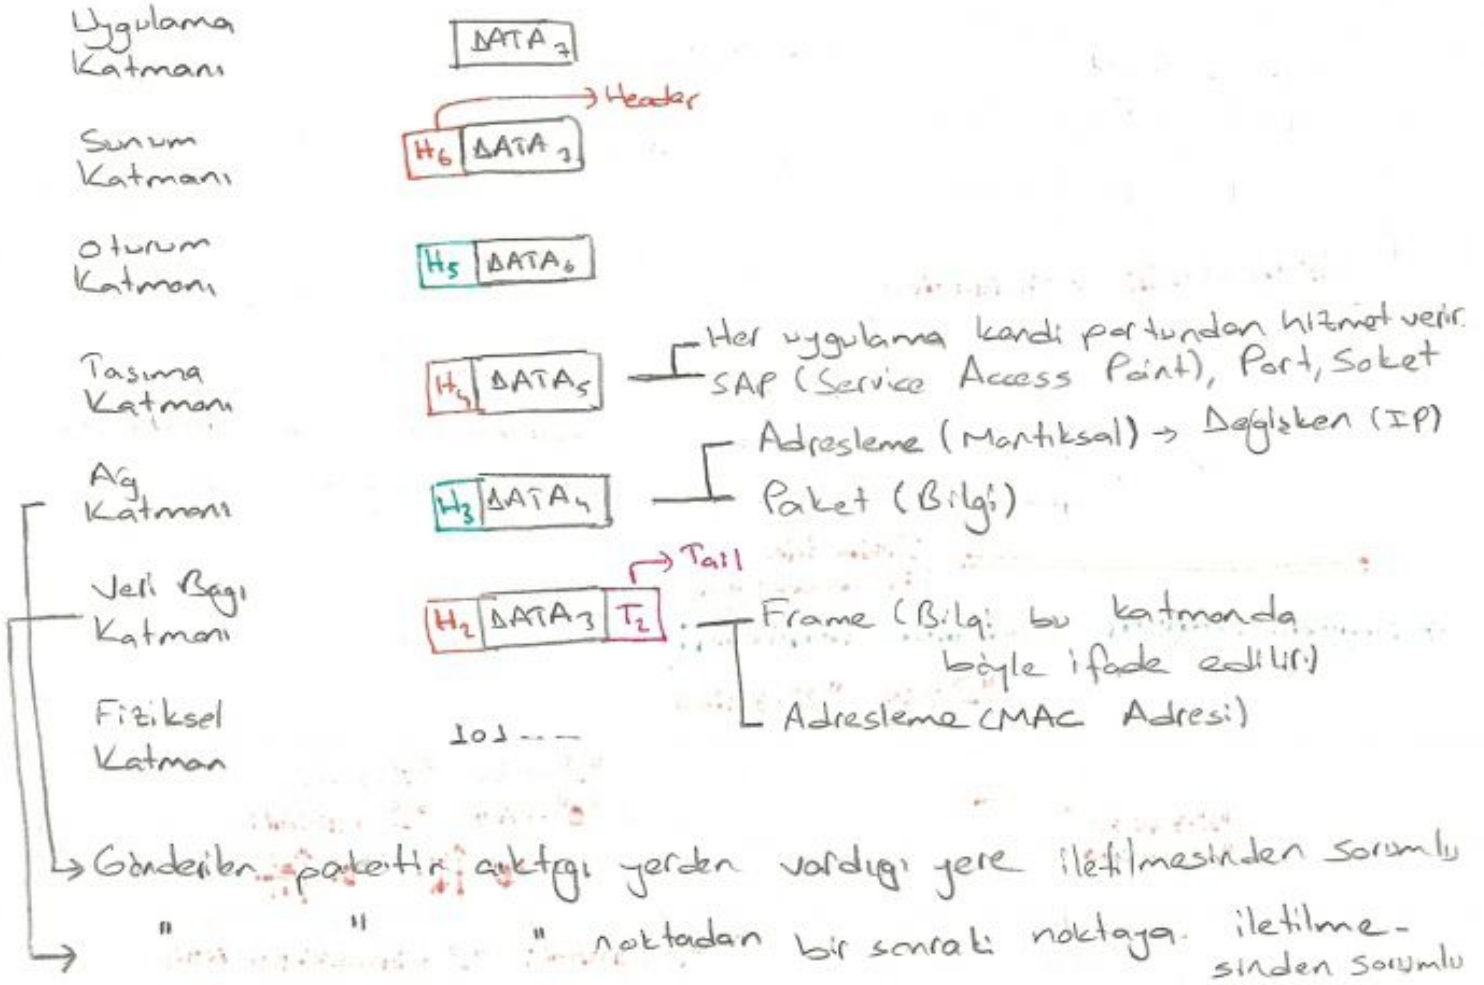 Uygulama
Katmanı
DATA 7
Header
Sunum
Katmanı
H6 DATA 7
Oturum
Katmanı
H5 DATA 6
Taşıma
Katmanı
H4 DATA 5
Her uygulama kendi portundan hizmet verir.
SAP (Service Access Point), Port, Soket
Ağ
Katmanı
H3 DATA 4
Adresleme (Mantıksal) → Değişken (IP)
Paket (Bilgi)
Tail
Veri Bağı
Katmanı
H2 DATA 3 T2
Frame (Bilgi bu katmanda
böyle ifade edilir.)
Adresleme (MAC Adresi)
Fiziksel
Katman
101----
Gönderilen paketin çıktığı yerden vardığı yere iletilmesinden sorumlu
" " " noktadan bir sonraki noktaya iletilme-
sinden sorumlu